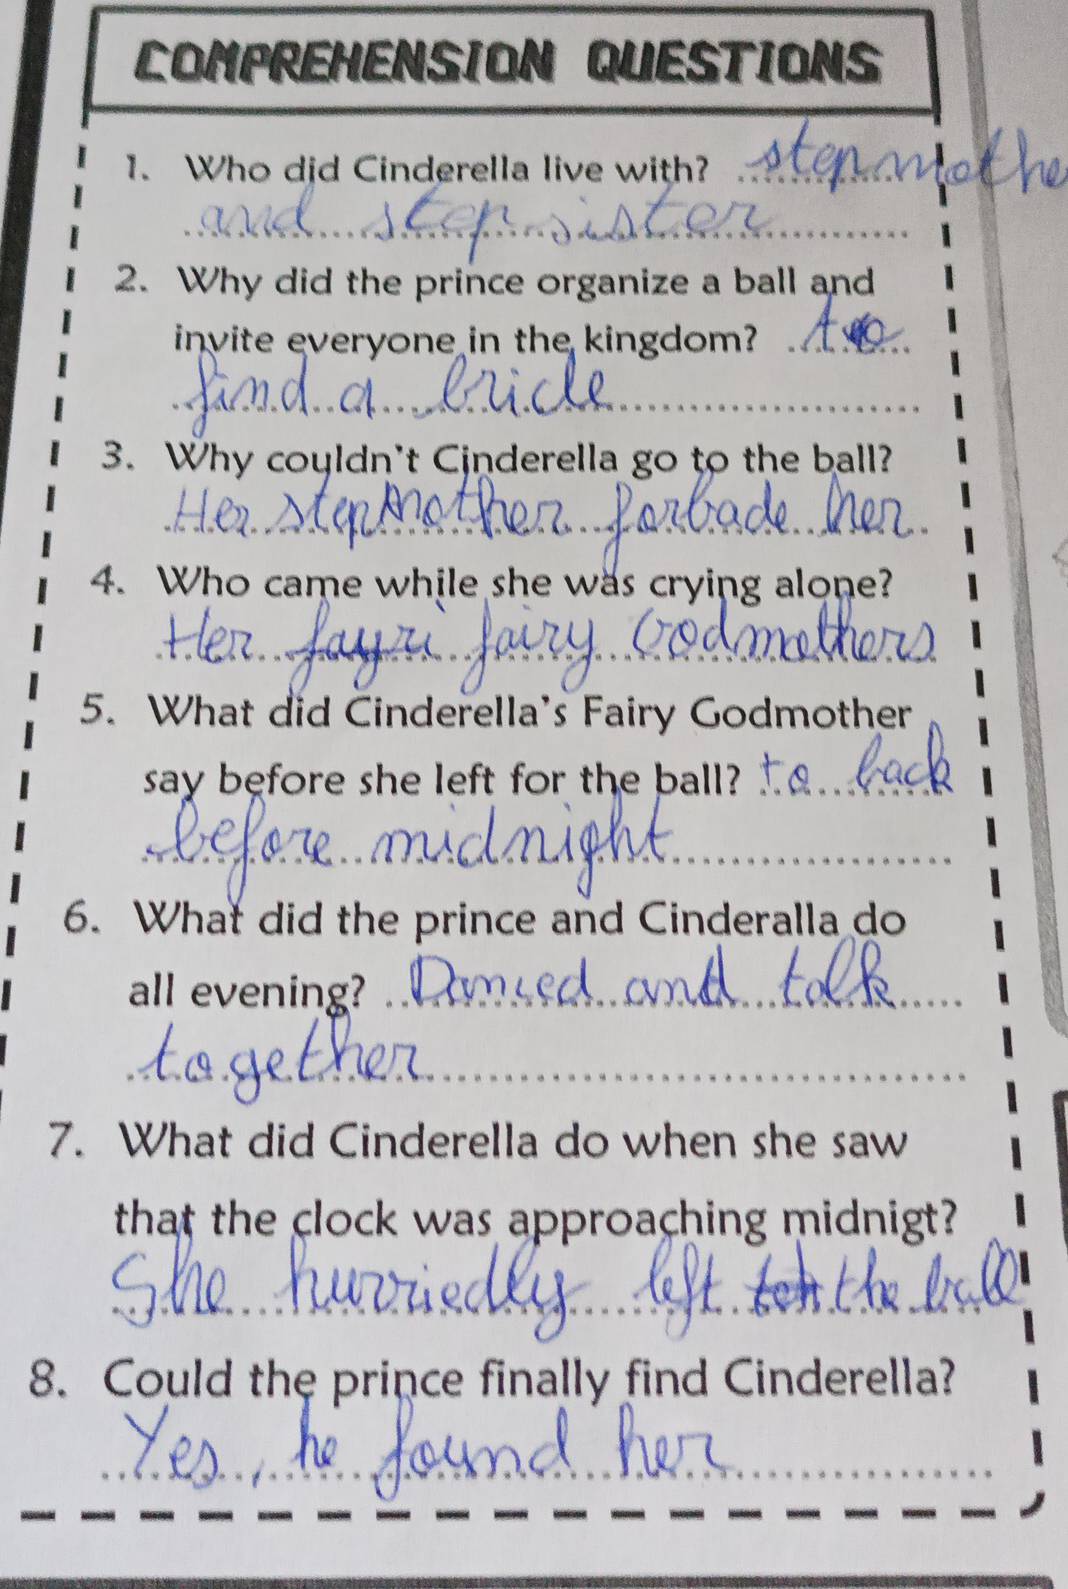 COMPREHENSION QUESTIONS
1. Who did Cinderella live with? stepmothe
and stepsister
2. Why did the prince organize a ball and
invite everyone in the kingdom? to
find a bride
3. Why couldn't Cinderella go to the ball?
Her stepmother forbade her
4. Who came while she was crying alone?
Her fayri fairy Godmothers
5. What did Cinderella's Fairy Godmother
say before she left for the ball? to back
before midnight
6. What did the prince and Cinderalla do
all evening? Danced and talk
together
7. What did Cinderella do when she saw
that the clock was approaching midnigt?
She hurriedly left the ball
8. Could the prince finally find Cinderella?
Yes, he found her